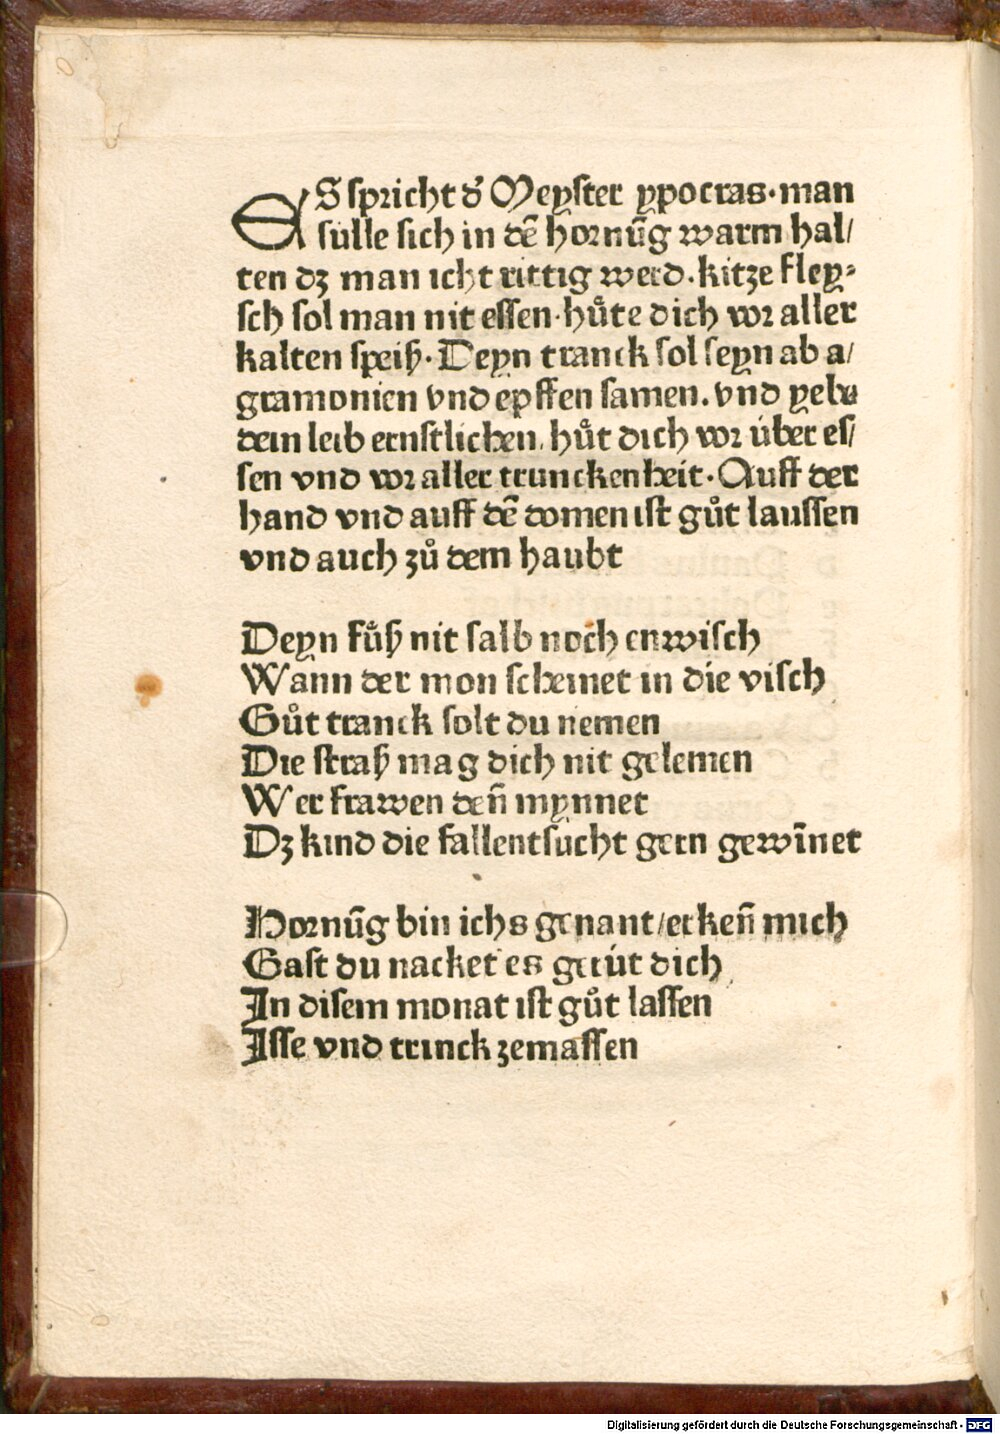 ES spricht dˀ Meyster ypocras·man
sülle sich in dē hornūg warm hal/
ten dꝫ man icht rittig werd·kitze fley⸗
sch sol man nit essen·hůte dich vor aller
kalten speiß·Deyn tranck sol seyn ab a/
gramonien vnd epffen samen·vnd yeb
dein leib ernstlichen·hůt dich vor über es/
sen vnd vor aller trunckenheit·Auff der
hand vnd auff dē domen ist gůt laussen
vnd auch zů dem haubt
Deyn fůß nit salb noch enwisch
Wann der mon scheinet in die visch
Gůt tranck solt du nemen
Die straß mag dich nit gelemen
Wer frawen deñ mynnet
Dꝫ kind die fallentsucht gern gewīnet
Hornūg bin ichs genant/erkeñ mich
Gast du nacket es gerüt dich
In disem monat ist gůt lassen
Isse vnd trinck zemassen
Digitalisierung gefördert durch die Deutsche Forschungsgemeinschaft - DFG